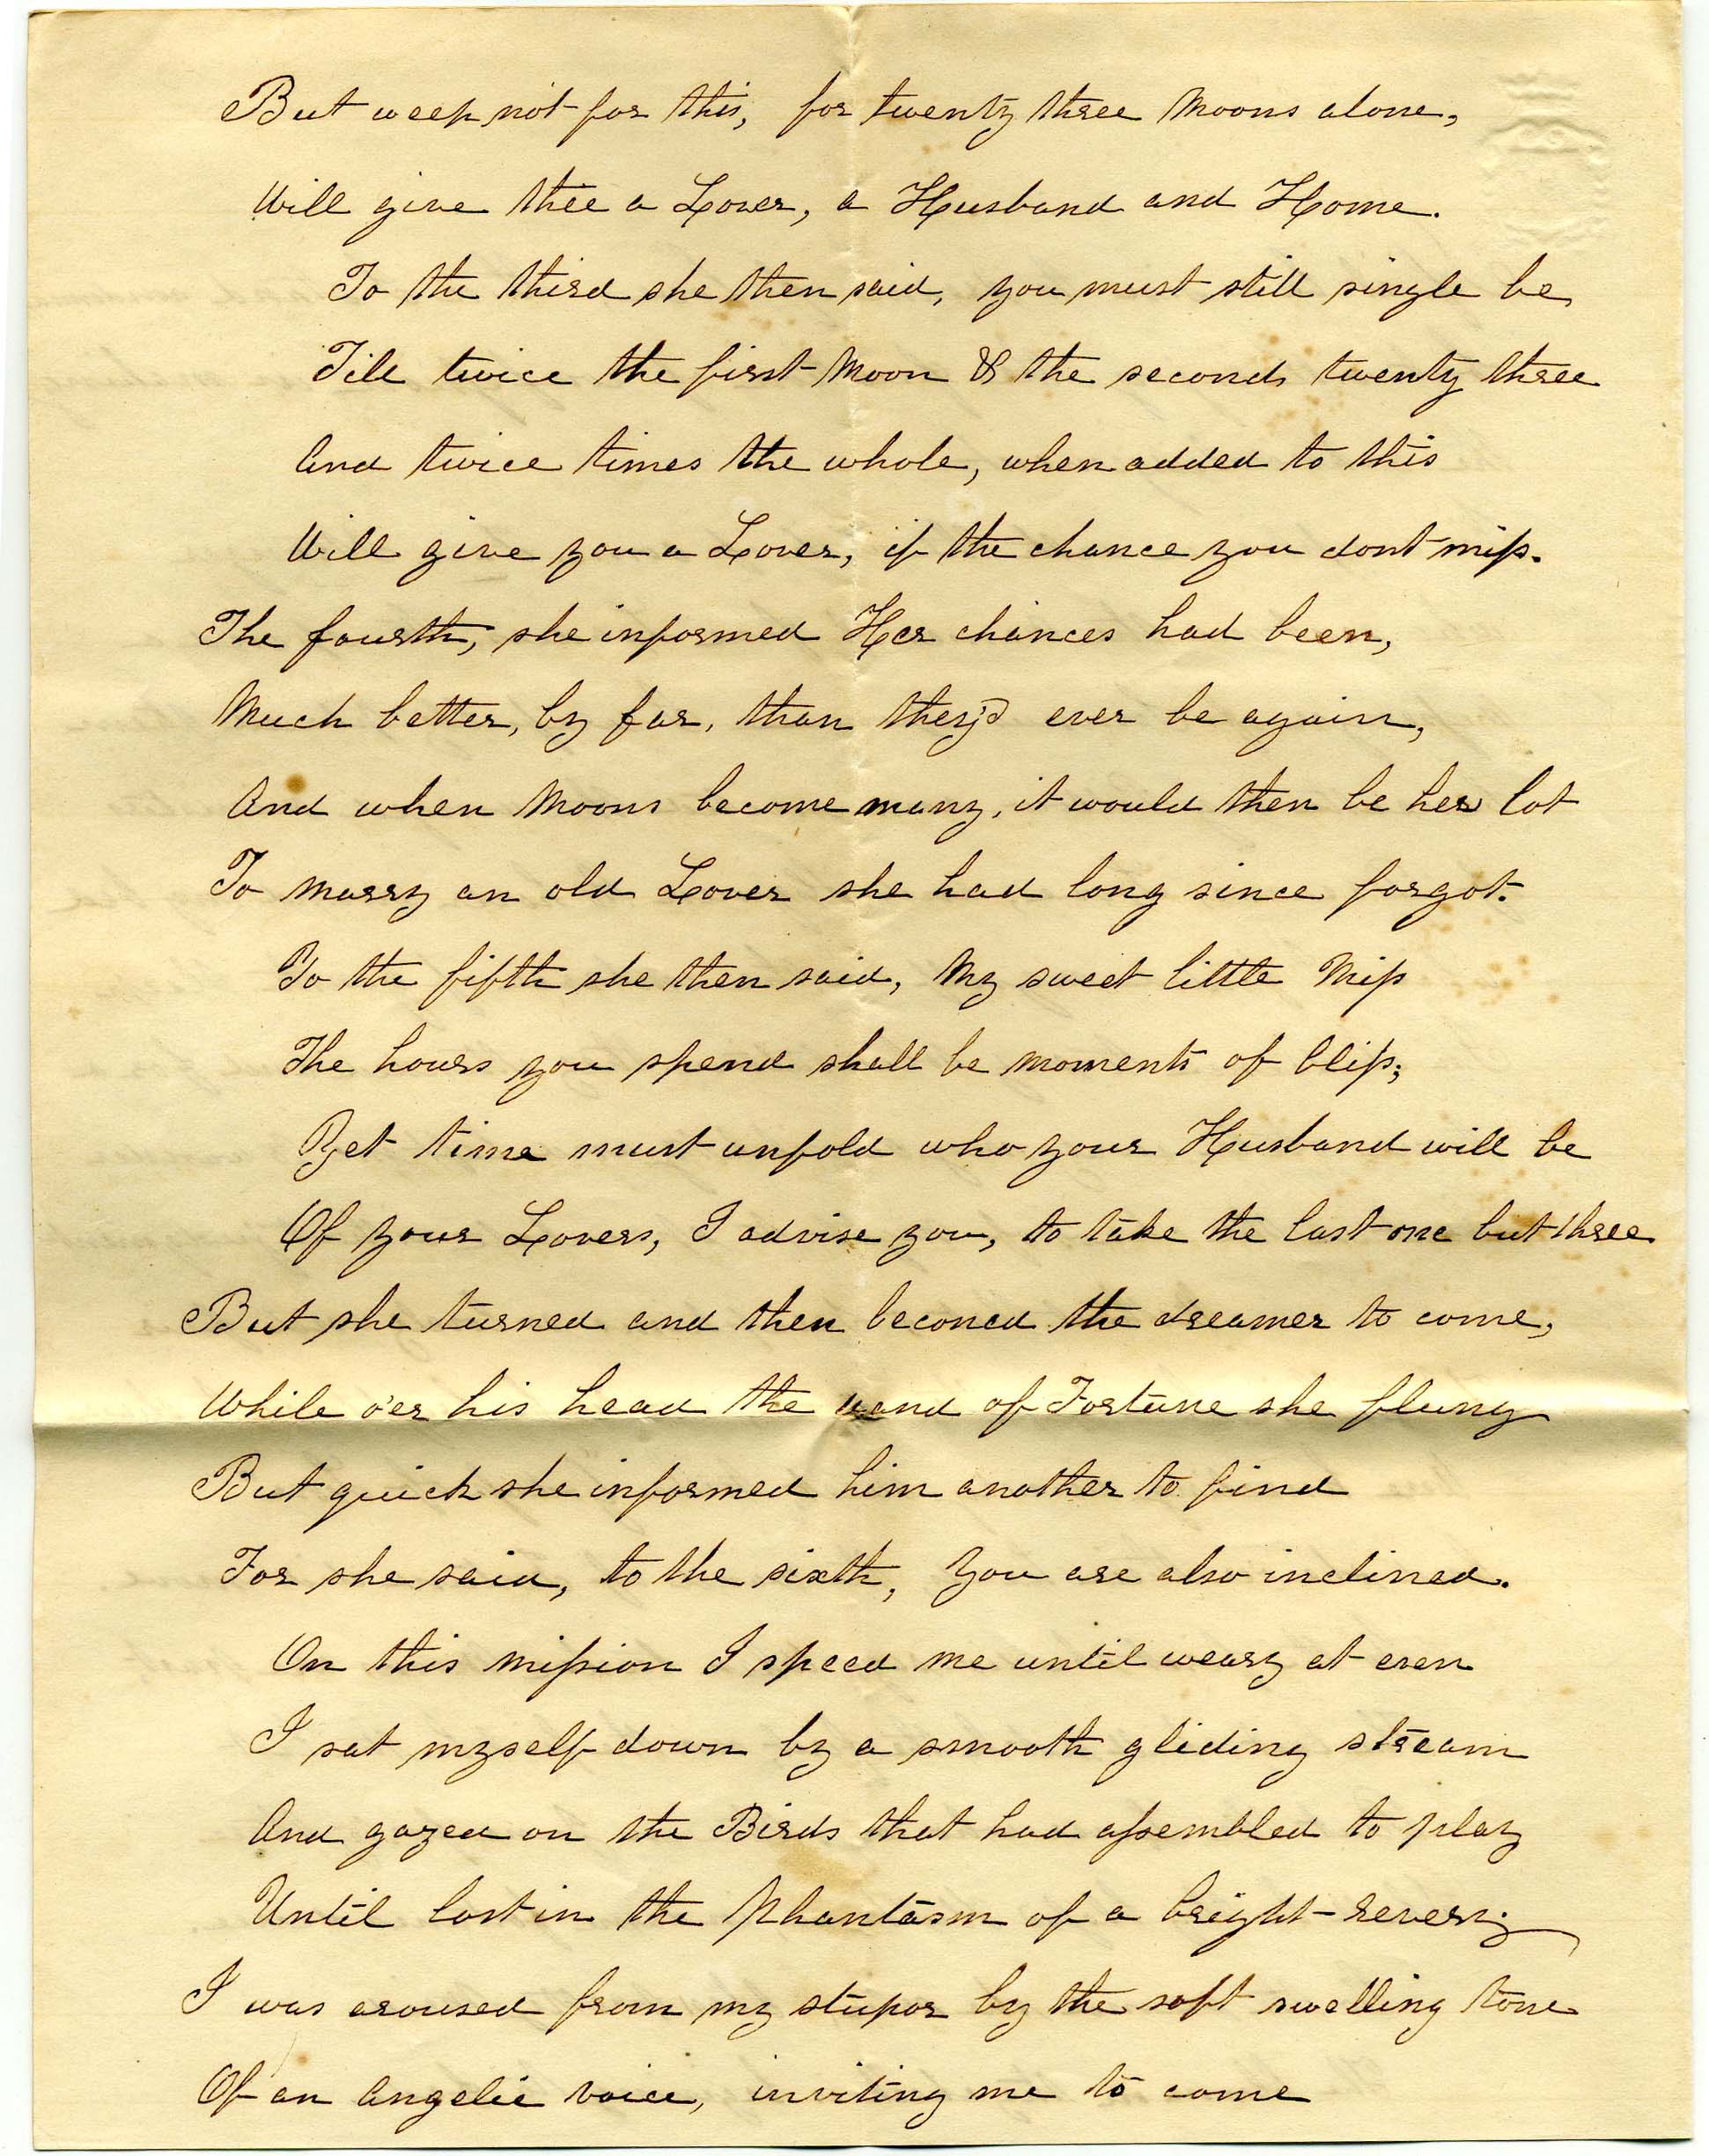 But weep not for this, for twenty three Moons alone,
Will give thee a Lover, a Husband and Home.
To the third she then said, you must still single be,
Till twice the first Moon & the seconds twenty three
And twice times the whole, when added to this
Will give you a Lover, if the chance you dont miss.
The fourth, she informed Her chances had been,
Much better, by far, than they'd ever be again,
And when Moons become many, it would then be her lot
To marry an old Lover she had long since forgot.
To the fifth she then said, My sweet little Miss
The hours you spend shall be moments of bliss;
Yet time must unfold who your Husband will be
Of your Lovers, I advise you, to take the last one but three
But she turned and then beconed the dreamer to come,
While o'er his head the wand of Fortune she flung
But quick she informed him another to find
For she said, to the sixth, You are also inclined.
On this mission I speed me until weary at even
I sat myself down by a smooth gliding stream
And gazed on the Birds that had assembled to play
Until lost in the Phantasm of a bright-revery.
I was aroused from my stupor by the soft swelling tone
Of an Angelic voice, inviting me to come